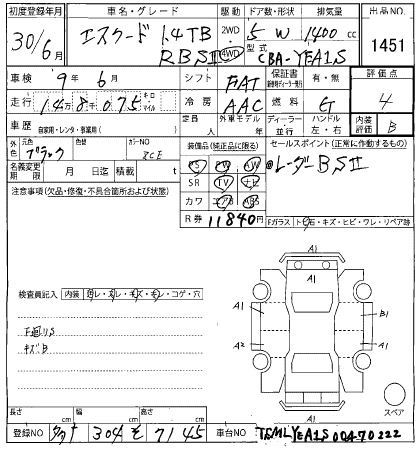 初度登録年月 車名・グレード 駆動 ドア数・形状 排気量 出品NO.
30/6月 エスクード 1.4TB 2WD 5 W 1400 cc 1451
RBSⅡ 4WD 型式 CBA-YEA1S
車検 9年 6月 シフト FAT 保証書 有・無 評価点
走行 14万8千075 キロ マイル 冷房 AAC 燃料 G 4
車歴 自家用・レンタ・事業用( ) 定員 人 外車モデル 年 ディーラー 並行 ハンドル 左・右 内装評価 B
外色 元色 ブラック 色替 カラーNO ZCE 装備品(純正品に限る) セールスポイント(正常に作動するもの)
名義変更期限 月 日迄 積載 t PS PW ◎レーダーBSⅡ
注意事項(欠品・修復・不具合箇所および状態) SR TV ナビ
カワ エアB ABS
R券 11840円 Fガラス トビ石・キズ・ヒビ・ワレ・リペア跡
A1
A1
検査員記入 内装 ヨゴレ・スレ・キズ・キレ・コゲ・穴
A1 B1
下廻りS
キズB A2 A1
A1
スペア
長さ cm 幅 cm 高さ cm
登録NO 304 そ 7145 車台NO TSMLYEA1S00470222